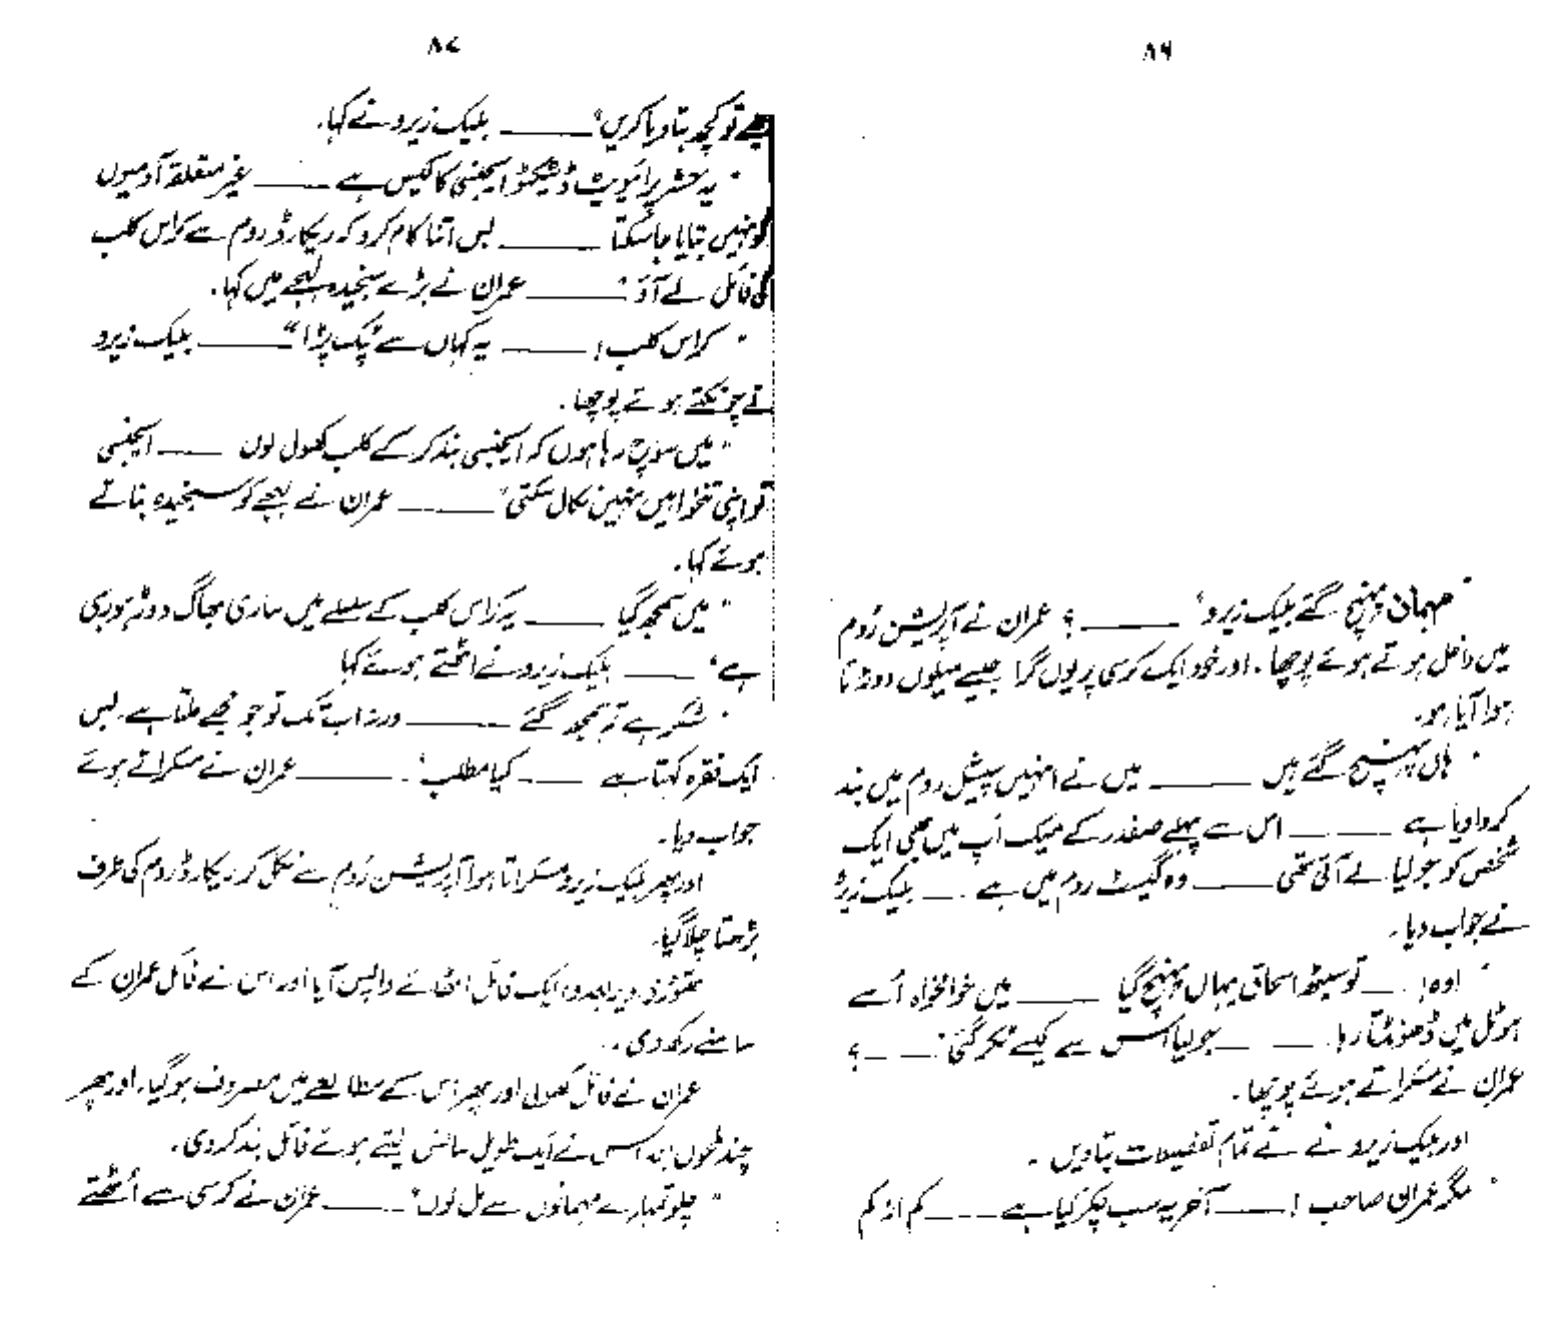 ۸۶
"مہمان پہنچ گئے بلیک زیرو" ـــــ ؟ عمران نے آپریشن روم
میں داخل ہوتے ہوئے پوچھا۔ اور خود ایک کرسی پر یوں گرا جیسے میلوں دوڑتا
ہوا آیا ہو۔
"ہاں پہنچ گئے ہیں ـــــ میں نے انہیں سپیشل روم میں بند
کروا دیا ہے ـــــ اس سے پہلے صفدر کے میک اپ میں بھی ایک
شخص کو جولیا لے آئی تھی ـــــ وہ گیسٹ روم میں ہے ۔ ـــ بلیک زیرو
نے جواب دیا۔
"اوہ! ـــ تو سیٹھ اسحاق یہاں پہنچ گیا ـــــ میں خوامخواہ اُسے
ہوٹل میں ڈھونڈتا رہا۔ ـــــ جولیا اس سے کیسے ٹکر گئی"۔ ـــ ـــ ؟
عمران نے مسکراتے ہوئے پوچھا۔
اور بلیک زیرو نے نے تمام تفصیلات بتا دیں ۔
"مگر عمران صاحب ! ـــــ آخر یہ سب چکر کیا ہے ـــــ کم از کم
۸۷
مجھے تو کچھ بتا دیا کریں" ـــــ بلیک زیرو نے کہا۔
"یہ مسٹر پرائیویٹ ڈیٹیکٹو ایجنسی کا کیس ہے ـــــ غیر متعلقہ آدمیوں
کو نہیں بتایا جا سکتا ـــــ بس اتنا کام کرو کہ ریکارڈ روم سے کراس کلب
کی فائل لے آؤ" ـــــ عمران نے بڑے سنجیدہ لہجے میں کہا۔
"کراس کلب! ـــــ یہ کہاں سے ٹپک پڑا" ـــــ بلیک زیرو
نے چونکتے ہوئے پوچھا۔
"میں سوچ رہا ہوں کہ ایجنسی بند کر کے کلب کھول لوں ـــــ ایجنسی
تو اپنی تنخواہیں نہیں نکال سکتی" ـــــ عمران نے لہجے کو سنجیدہ بناتے
ہوئے کہا۔
"میں سمجھ گیا ـــــ یہ کراس کلب کے سلسلے میں ساری بھاگ دوڑ ہو رہی
ہے" ـــــ بلیک زیرو نے اٹھتے ہوئے کہا
"شکر ہے تم سمجھ گئے ـــــ ورنہ اب تک تو جو مجھے ملتا ہے۔ بس
ایک فقرہ کہتا ہے ـــــ کیا مطلب"۔ ـــــ عمران نے مسکراتے ہوئے
جواب دیا۔
اور پھر بلیک زیرو مسکراتا ہوا آپریشن روم سے نکل کر ریکارڈ روم کی طرف
بڑھتا چلا گیا۔
تھوڑی دیر بعد وہ ایک فائل اٹھائے واپس آیا اور اس نے فائل عمران کے
سامنے رکھ دی ۔
عمران نے فائل کھولی اور پھر اس کے مطالعے میں مصروف ہو گیا۔ اور پھر
چند لمحوں بعد اس نے ایک طویل سانس لیتے ہوئے فائل بند کر دی۔
"چلو تمہارے مہمانوں سے مل لوں" ـــــ عمران نے کرسی سے اُٹھتے